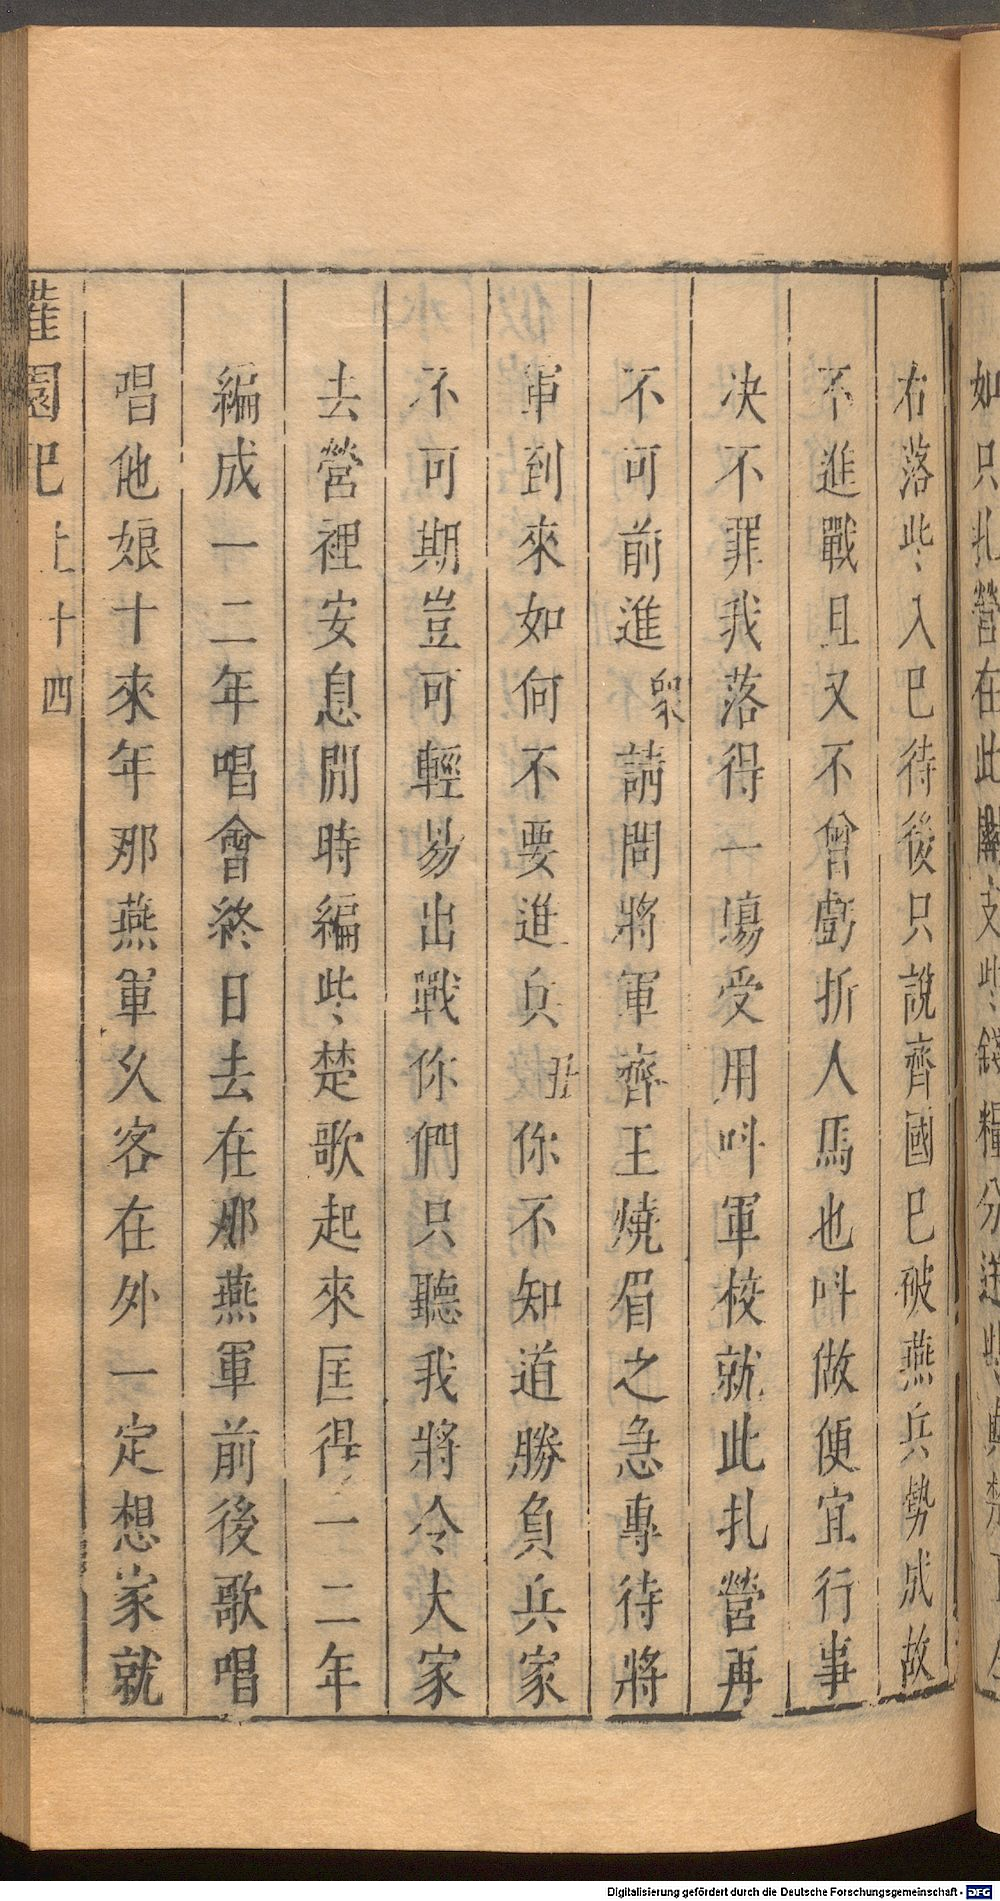 如只扎營在此
右落些入已待後只說齊國已破燕兵勢成故
不進戰且又不曾虧折人馬也呌做便宜行事
决不罪我落得一塲受用呌軍校就此扎營再
不可前進衆請問將軍齊王燒眉之急專待將
軍到來如何不要進兵丑你不知道勝負兵家
不可期豈可輕易出戰你們只聽我將令大家
去營裡安息閒時編些楚歌起來匡得一二年
編成一二年唱會終日去在那燕軍前後歌唱
唱他娘十來年那燕軍久客在外一定想家就
灌園記 上 十四
Digitalisierung gefördert durch die Deutsche Forschungsgemeinschaft - DFG